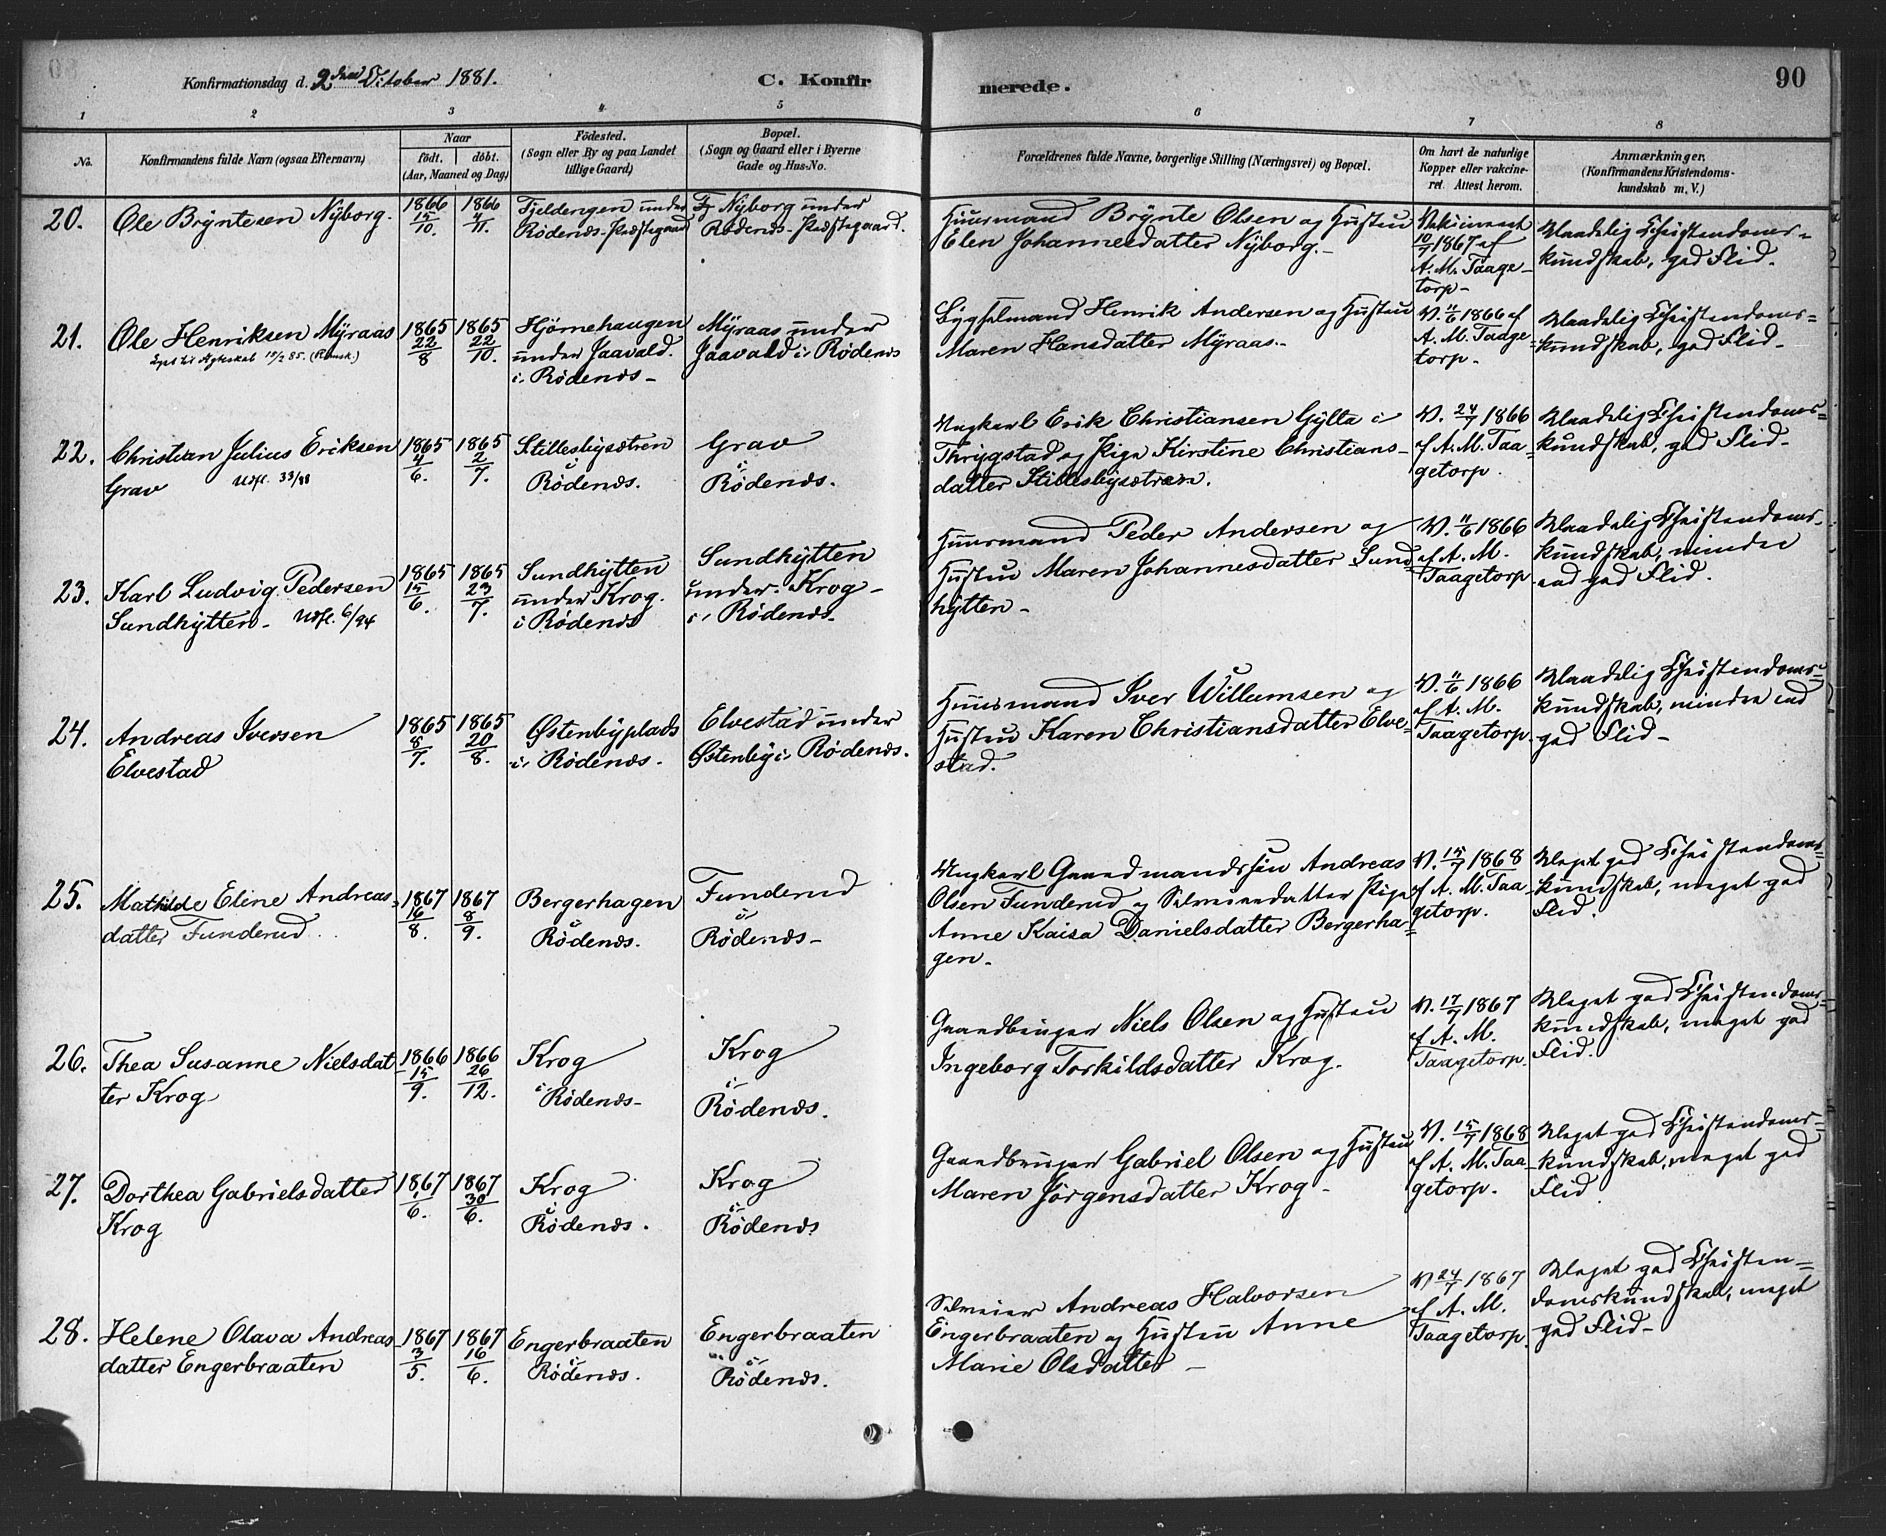 Konfirmationsdag d. 2den October 1881.
C. Konfir
merede.
90
1 2 3 4 5 6 7 8
No.
Konfirmandens fulde Navn (ogsaa Efternavn)
Naar
født. døbt.
(Aar, Maaned og Dag)
Födested.
(Sogn eller By og paa Landet
tillige Gaard)
Bopæl.
(Sogn og Gaard eller i Byerne
Gade og Hus-No.
Forældrenes fulde Navne, borgerlige Stilling (Næringsvei) og Bopæl.
Om havt de naturlige
Kopper eller vakcine-
ret. Attest herom.
Anmærkninger.
(Konfirmandens Kristendoms-
kundskab m. V.)
20.
Ole Brÿntesen Nÿborg.
1866 15/10.
1866 4/11.
Fjeldengen under
Rødenæs-Præstegaard
Nÿborg under
Rødenæs-Præstegaard.
Huusmand Brÿnte Olsen og Hustru
Elen Johannesdatter Nÿborg.-
Vaksineret
10/7 1867 af
A. M. Taage-
torp-
Maadelig Christendoms-
kundskab, god Flid.
21.
Ole Henriksen Mÿraas
1865 22/8
1865 22/10.
Hjørnehaugen
under Jaavald.
i Rødenæs-
Mÿraas under
Jaavald i Rødenæs
Bygselmand Henrik Andersen og Hustru
Maren Hansdatter Mÿraas.-
V. 11/6 1866 af
A. M. Taage-
torp-
Maadelig Christendoms-
kundskab, god Flid-
22.
Christian Julius Eriksen
Grav Udfl. 33/88
1865 4/6.
1865 2/7.
Stillesbysætren
i
Rødenæs.
Grav
i
Rødenæs.
Ungkarl Erik Christiansen Gÿlta i
Thrygstad og Pige Kirstine Christians-
datter Stillesbysætren.
V. 24/7 1866
af A. M. Taa-
getorp.
Maadelig Christendoms-
kundskab, god Flid-
23.
Karl Ludvig Pedersen
Sundhÿtten- Udfl. 6/94
1865 15/6.
1865 23/7.
Sundhÿtten
under Krog.
i Rødenæs
Sundhÿtten
under Krog-
i Rødenæs.
Huusmand Peder Andersen og
Hustru Maren Johannesdatter Sund
hÿtten-
V. 11/6 1866
af A. M.
Taagetorp
Maadelig Christendoms-
kundskab, mindre
end god Flid.
24.
Andreas Iversen
Elvestad
1865 8/7.
1865 20/8.
Østenbyplads
i Rødenæs-
Elvestad under
Østenby i Rødenæs.
Huusmand Iver Willumsen og
Hustru Karen Christiansdatter Elve-
stad.
V. 11/6 1866
af A. M.
Taagetorp.
Maadelig Christendoms-
kundskab, mindre end
god Flid-
25.
Mathilde Eline Andreas-
datter Funderud.
1867 16/8.
1867 8/9.
Bergerhagen
i
Rødenæs.
Funderud
i
Rødenæs-
Ungkarl Gaardmandssøn Andreas
Olsen Funderud og Selveierdatter Pige
Anne Kaisa Danielsdatter Bergerha-
gen-
V. 15/7 1868
af A. M. Taa-
getorp.
Meget god Christendoms-
kundskab, meget god
Flid.
26.
Thea Susanne Nielsdat-
ter Krog
1866 15/9.
1866 26/12.
Krog
i Rødenæs-
Krog
i
Rødenæs.
Gaardbruger Niels Olsen og Hustru
Ingeborg Torkildsdatter Krog.
V. 17/7 1867
af A. M.
Taagetorp.
Meget god Christendoms-
kundskab, meget god
Flid.
27.
Dorthea Gabrielsdatter
Krog
1867 1/6.
1867 30/6.
Krog
i
Rødenæs.
Krog
i
Rødenæs
Gaardbruger Gabriel Olsen og Hustru
Maren Jørgensdatter Krog-
V. 15/7 1868
af A. M. Taa-
getorp.
Meget god Christendoms-
kundskab, meget god
Flid
28.
Helene Olava Andreas-
datter Engerbraaten
1867 3/5.
1867 16/6.
Engerbraaten
i
Rødenæs.
Engerbraaten
i
Rødenæs.
Selveier Andreas Halvorsen
Engerbraaten og Hustru Anne
Marie Olsdatter-
V 24/7 1867
af A. M.
Taagetorp.
Meget god Christen-
domskundskab, meget
god Flid-